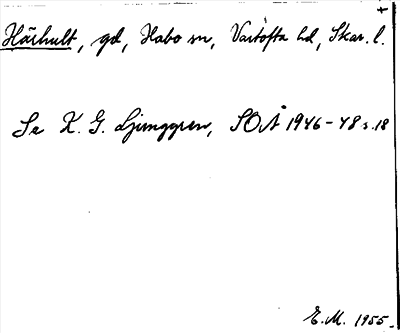 +
Härhult, gd, Habo sn, Vartofta hd, Skar. l.
Se K. G. Ljunggren, SOÅ 1946-48 s. 18
E. M. 1955.